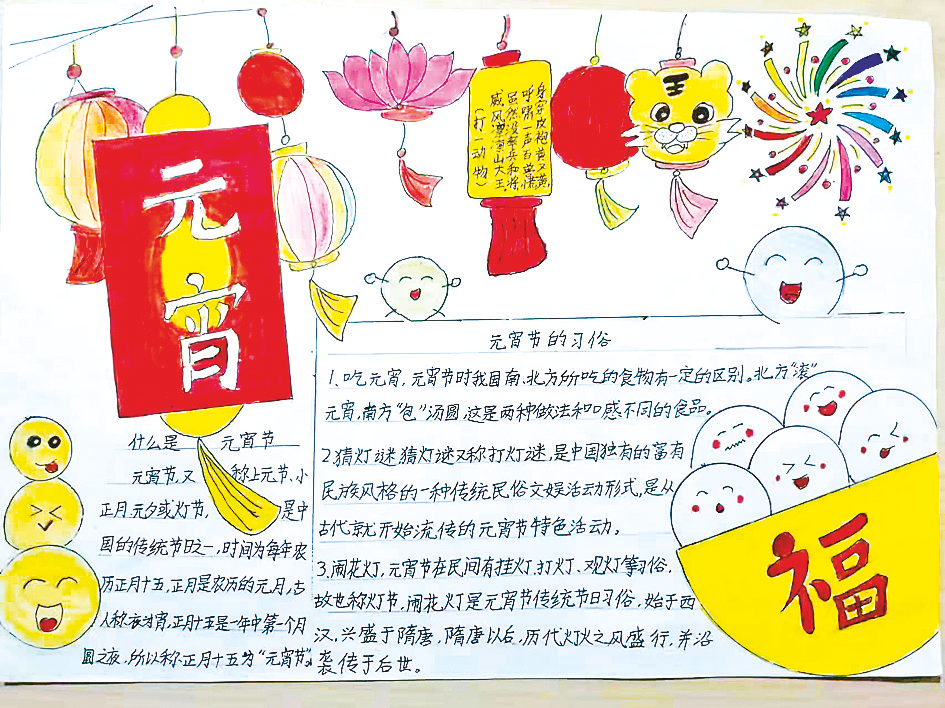 元宵
身穿皮袍黄又黄,
呼啸一声百兽慌,
虽然没率兵和将,
威风凛凛山大王。
(打一动物)
王
什么是 元宵节
元宵节,又 称上元节、小
正月、元夕或灯节, 是中
国的传统节日之一,时间为每年农
历正月十五,正月是农历的元月,古
人称夜为宵,正月十五是一年中第一个月
圆之夜,所以称正月十五为“元宵节”。
元宵节的习俗
1、吃元宵,元宵节时我国南、北方所吃的食物有一定的区别。北方“滚”
元宵,南方“包”汤圆,这是两种做法和口感不同的食品。
2.猜灯谜,猜灯谜又称打灯谜,是中国独有的富有
民族风格的一种传统民俗文娱活动形式,是从
古代就开始流传的元宵节特色活动。
3.闹花灯,元宵节在民间有挂灯、打灯、观灯等习俗,
故也称灯节,闹花灯是元宵节传统节日习俗,始于西
汉,兴盛于隋唐,隋唐以后,历代灯火之风盛行,并沿
袭传于后世。
福